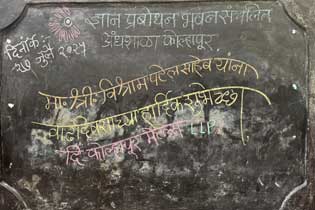 ज्ञान प्रबोधन भवन संचलित
अंधशाळा कोल्हापूर.
दिनांक
२७ जुलै २०२५
मा. श्री. विश्राम पटेल साहेब यांना
वाढदिवसाच्या हार्दिक शुभेच्छा
दि कोल्हापूर